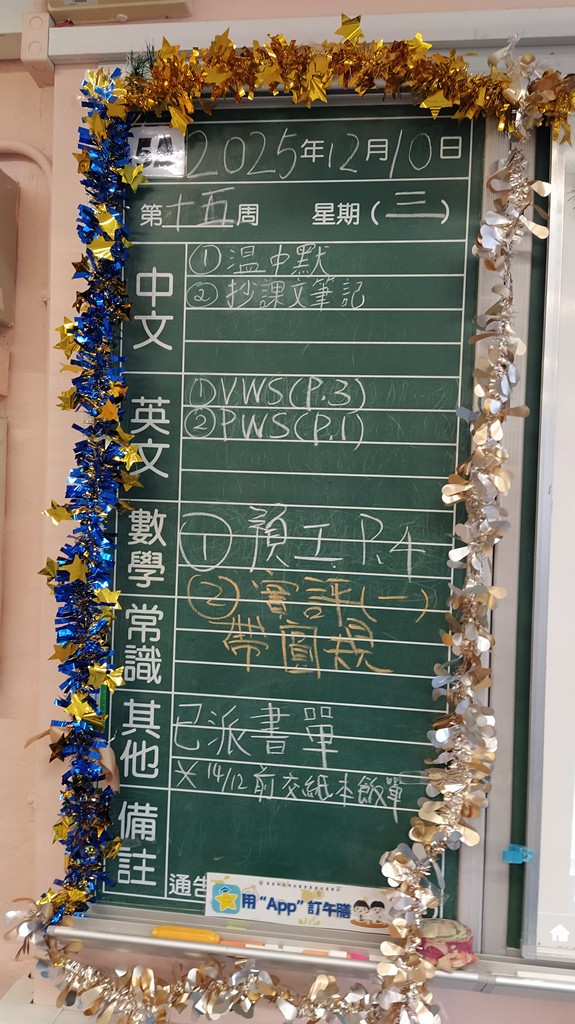 2025年12月10日
第十五周 星期(三)
中文
①溫中默
②抄課文筆記
英文
①VWS(P.3)
②PWS(P.1)
數學
①預工 P.4
②實評(一)
帶圓規
常識
其他
已派書單
*14/12前交紙本飯單
備註
通告
用“App”訂午膳